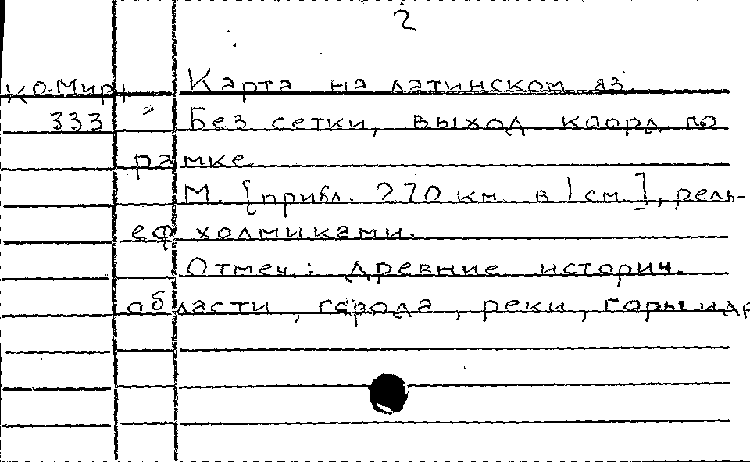 2
КО.Мир Карта на латинском яз.
333 Без сетки, выход коорд. по
рамке.
М. [прибл. 270 км. в 1 см.], рель-
еф холмиками.
Отмеч.: древние историч.
области, города, реки, горы и др